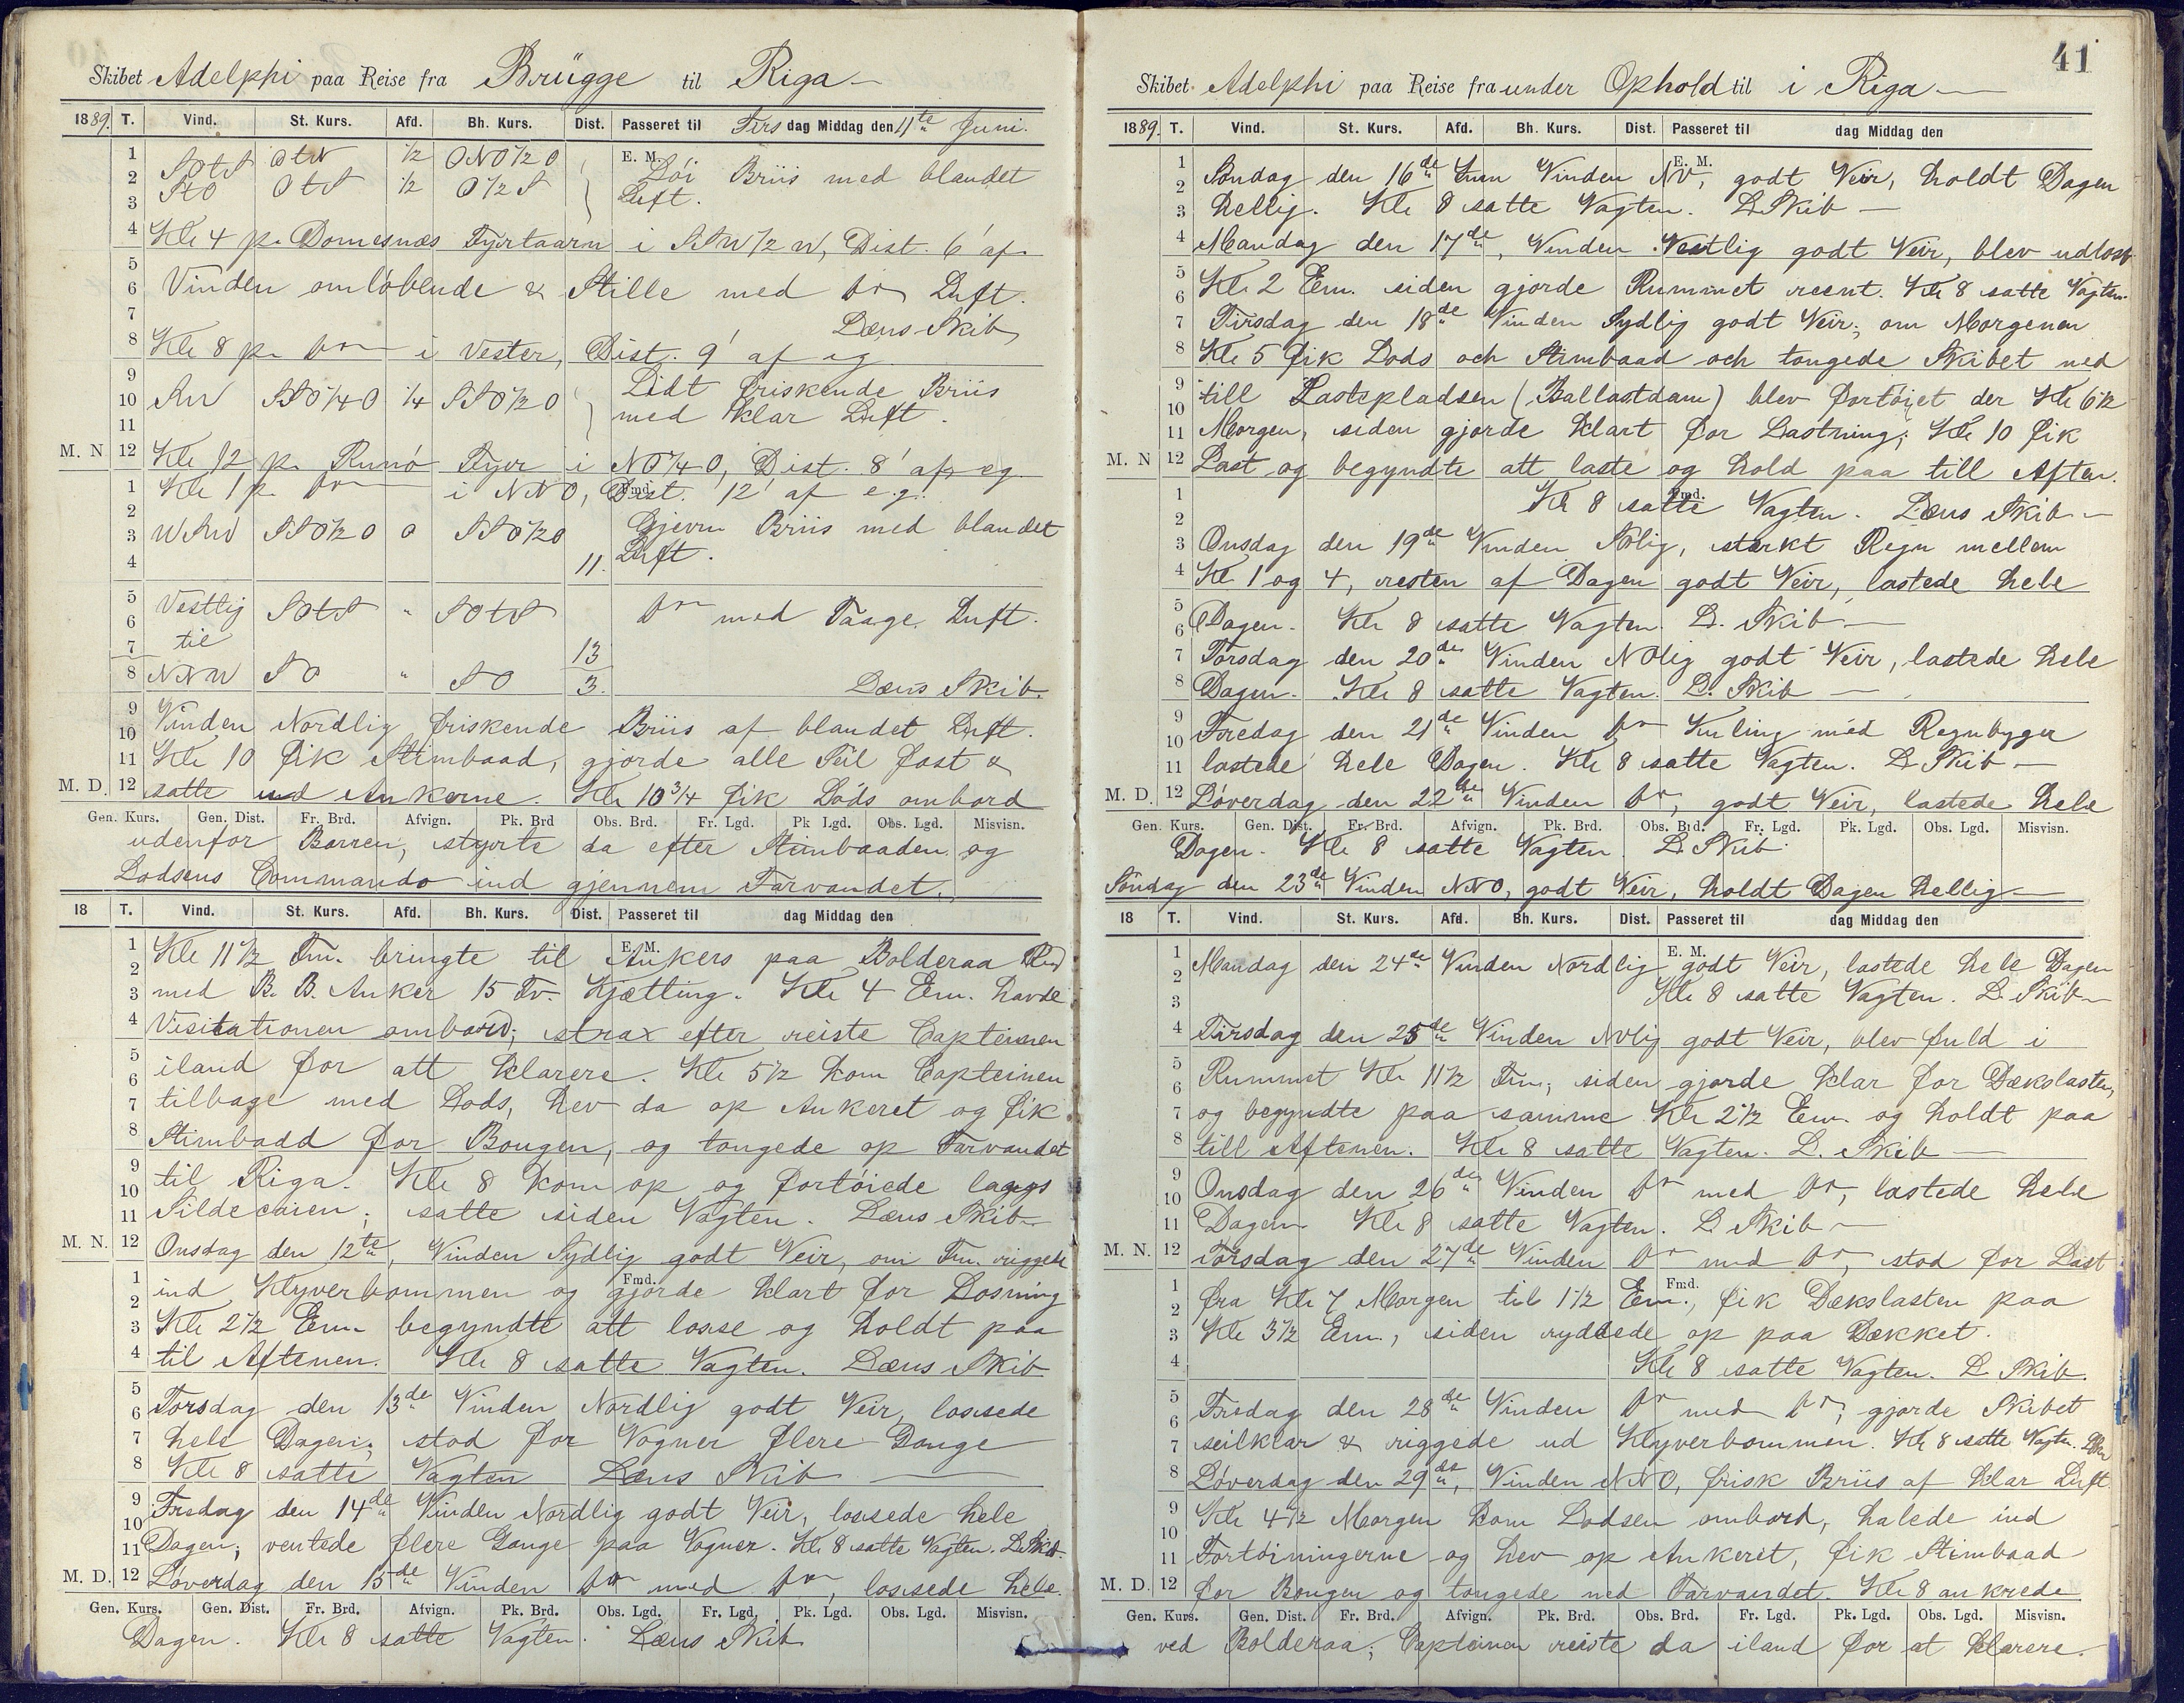 Skibet Adelphi paa Reise fra Brügge til Riga
1889. T. Vind. St. Kurs. Afd. Bh. Kurs. Dist. Passeret til Tirsdag Middag den 11te Juni.
1 SOtS OtN 1/2 ONO1/2O E. M. Løi Briis med blandet
2 StO OtS 1/2 O1/2S Luft.
3
4 Kle 4 p. Domesnæs Fyrtaarn i SSW1/2W, Dist. 6' af
5
6 Vinden omløbende & Stille med do Luft.
7 Læns Skib
8 Kle 8 p. do i Vester, Dist. 9' af eg
9 Lidt friskende Briis
10 SW SSO1/4O 1/4 SSO1/2O med klar Luft.
11
M. N 12 Kle 12 p. Runö Fyr i NO1/4O, Dist. 8' af eg.
1 Kle 1 p. do i NNO, Dist. 12' af e.g. Fmd.
2
3 WSW SSO1/2O 0 SSO1/2O Gjevn Briis med blandet
4 11. Luft.
5 Vestlig SOtS " SOtS do med Taage Luft.
6 til
7 13
8 NNW SO " SO 3. Læns Skib.
9 Vinden Nordlig friskende Briis af blandet Luft.
10
11 Kle 10 fik Stimbaad, gjorde alle Seil fast &
M. D. 12 satte ud Ankerne. Kle 10 3/4 fik Lods ombord
Gen. Kurs. Gen. Dist. Fr. Brd. Afvign. Pk. Brd Obs. Brd. Fr. Lgd. Pk Lgd. Obs. Lgd. Misvisn.
udenfor Barren, styrte da efter Stimbaaden og
Lodsens Commando ind gjennem Farvandet.
18 T. Vind. St. Kurs. Afd. Bh. Kurs. Dist. Passeret til dag Middag den
1 E. M.
2 Kle 11 1/2 Fm. bringte til Ankers paa Bolderaa Red
3 med B. B. Anker 15 Fv. Kjætting. Kle 4 Em. havde
4 Visitationen ombord; strax efter reiste Capteinen
5 iland for att klarere. Kle 5 1/2 kom Capteinen
6
7 tilbage med Lods, hev da op Ankeret og fik
8 Stimbadd for Bougen, og tougede op Farvandet
9
10 til Riga. Kle 8 kom op og fortøiede langs
11 Sildecaien; satte siden Vagten. Læns Skib
M. N. 12 Onsdag den 12te, Vinden Sydlig godt Veir, om Fm. riggede
1 ind Klyverbommen og gjorde klart for Losning Fmd.
2
3 Kle 2 1/2 Em. begyndte att losse og holdt paa
4 til Aftenen. Kle 8 satte Vagten. Læns Skib
5
6 Torsdag den 13de Vinden Nordlig godt Veir, lossede
7 hele Dagen; stod for Vogner flere Gange
8 Kle 8 satte Vagten Læns Skib
9 Fredag den 14de Vinden Nordlig godt Veir, lossede hele
10
11 Dagen; ventede flere Gange paa Vogner. Kle 8 satte Vagten. L. Skib.
M. D. 12 Løverdag den 15de Vinden do med do, lossede hele
Gen. Kurs. Gen. Dist. Fr. Brd. Afvign. Pk. Brd. Obs. Lgd. Fr. Lgd. Pk. Lgd. Obs. Lgd. Misvisn.
Dagen. Kle 8 satte Vagten. Læns Skib
41
Skibet Adelphi paa Reise fra under Ophold til i Riga
1889. T. Vind. St. Kurs. Afd. Bh. Kurs. Dist. Passeret til dag Middag den
1 E. M.
2 Søndag den 16de Juni Vinden NV, godt Veir, holdt Dagen
3 hellig. Kle 8 satte Vagten. L. Skib
4 Mandag den 17de, Vinden Vestlig godt Veir, blev udlosst
5
6 Kle 2 Em. siden gjorde Rummet reent. Kle 8 satte Vagten.
7 Tirsdag den 18de Vinden Sydlig godt Veir; om Morgenen
8 Kle 5 fik Lods och Stimbaad och tougede Skibet ned
9
10 till Lastepladsen (Ballastdam) blev fortøiet der Kle 6 1/2
11 Morgen, siden gjorde klart for Lastning; Kle 10 fik
M. N 12 Last og begyndte att laste og hold paa till Aften.
1 Kle 8 satte Vagten. Læns Skib Fmd.
2
3 Onsdag den 19de Vinden SOlig, starkt Regn mellem
4 Kle 1 og 4, resten af Dagen godt Veir, lastede hele
5
6 Dagen. Kle 8 satte Vagten. L. Skib
7 Torsdag den 20de Vinden NOlig godt Veir, lastede hele
8 Dagen. Kle 8 satte Vagten. L. Skib
9
10 Fredag den 21de Vinden do Kuling med Regnbyger
11 lastede hele Dagen. Kle 8 satte Vagten. L Skib
M. D. 12 Løverdag den 22de Vinden do, godt Veir, lastede hele
Gen. Kurs. Gen. Dist. Fr. Brd. Afvign. Pk. Brd. Obs. Brd. Fr. Lgd. Pk. Lgd. Obs. Lgd. Misvisn.
Dagen. Kle 8 satte Vagten L. Skib
Söndag den 23de Vinden NNO, godt Veir, holdt Dagen hellig
18 T. Vind. St. Kurs. Afd. Bh. Kurs. Dist. Passeret til dag Middag den
1 E. M.
2 Mandag den 24de Vinden Nordlig godt Veir, lastede hele Dagen
3 Kle 8 satte Vagten. L. Skib
4 Tirsdag den 25de Vinden NOlig godt Veir, blev fuld i
5
6 Rummet Kle 11 1/2 Fm., siden gjorde klar for Dækslasten,
7 og begyndte paa samme Kle 2 1/2 Em. og holdt paa
8 till Aftenen. Kle 8 satte Vagten. L. Skib
9
10 Onsdag den 26de Vinden do med do, lastede hele
11 Dagen Kle 8 satte Vagten. L Skib
M. N. 12 Torsdag den 27de Vinden do med do, stod for Last
1 Fmd.
2 fra Kle 7 Morgen til 1 1/2 Em., fik Dækslasten paa
3 Kle 3 1/2 Em., siden ryddede op paa Dækket.
4 Kle 8 satte Vagten. L Skib.
5
6 Fredag den 28de Vinden do med do; gjorde Skibet
7 seilklar & riggede ud Klyverbommen. Kle 8 satte Vagten.
8 Løverdag den 29de, Vinden NNO, frisk Briis af klar Luft
9
10 Kle 4 1/2 Morgen kom Lodsen ombord, halede ind
11 Fortøiningerne og hev op Ankeret, fik Stimbaad
M. D. 12 for Bougen og tougede ned Farvandet. Kle 8 ankrede
Gen. Kurs. Gen. Dist. Fr. Brd. Afvign. Pk. Brd. Obs. Brd. Fr. Lgd. Pk. Lgd. Obs. Lgd. Misvisn.
ved Bolderaa; Capteinen reiste da iland for at klarere.